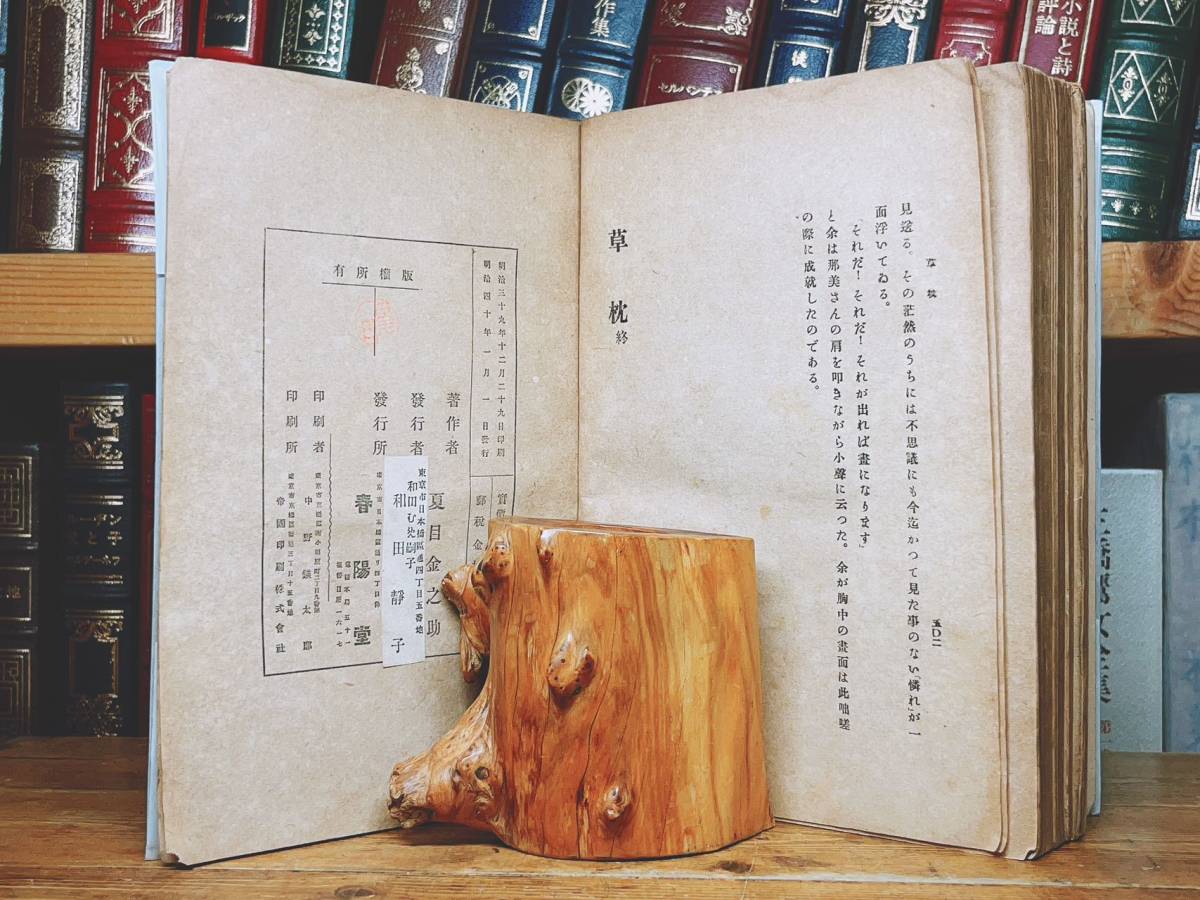 草枕
五〇二
見送る。その茫然のうちには不思議にも今迄かつて見た事のない「憐れ」が一
面浮いてゐる。
「それだ！それだ！それが出れば畫になります」
と余は那美さんの肩を叩きながら小聲に云つた。余が胸中の畫面は此咄嗟
の際に成就したのである。
草枕終
明治三十九年十二月二十九日印刷
明治四十年一月一日發行
郵税金
版權所有
著作者 夏目金之助
發行者
東京市日本橋區通四丁目五番地
和田むめ嗣子
和田靜子
發行所
春陽堂
印刷者
印刷所
帝國印刷株式會社
作集
小説と詩
評論
セルバンテ